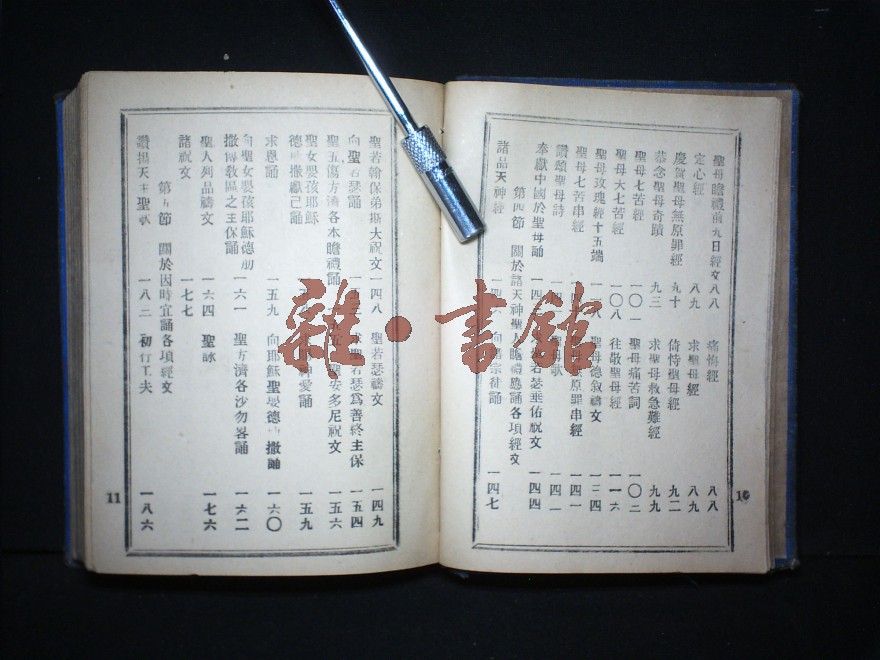 聖母瞻禮前九日經文 八八 痛悔經 八八
定心經 八九 求聖母經 八九
慶賀聖母無原罪經 九十 倚恃聖母經 九二
恭念聖母奇蹟 九三 求聖母救急難經 九九
聖母七苦經 一〇一 聖母痛苦詞 一〇二
聖母大七苦經 一〇八 往敬聖母經 一一六
聖母玫瑰經十五端 一一八 聖母德敘禱文 一三四
聖母七苦串經 原罪串經 一四一
讚頌聖母詩 聖母歌 一四二
奉獻中國於聖母誦 一四 若瑟垂佑祝文 一四四
第四節 關於諸天神聖人瞻禮應誦各項經文
諸品天神經 一四六 向 宗徒誦 一四七
10
聖若翰保弟斯大祝文 一四八 聖若瑟禱文 一四九
向聖若瑟誦 求聖若瑟為善終主保 一五四
聖五傷方濟各本瞻禮誦 聖安多尼祝文 一五六
聖女嬰孩耶穌
德肋撒獻己誦 神愛誦 一五九
求恩誦 一五九 向耶穌聖嬰德肋撒誦 一六〇
向聖女嬰孩耶穌德肋
撒傳教區之主保誦 一六一 聖方濟各沙勿畧誦 一六二
聖人列品禱文 一六四 聖詠 一七六
諸祝文 一七七
第五節 關於因時宜誦各項經文
讚揚天主聖歌 一八二 初行工夫 一八六
11
雜·書館